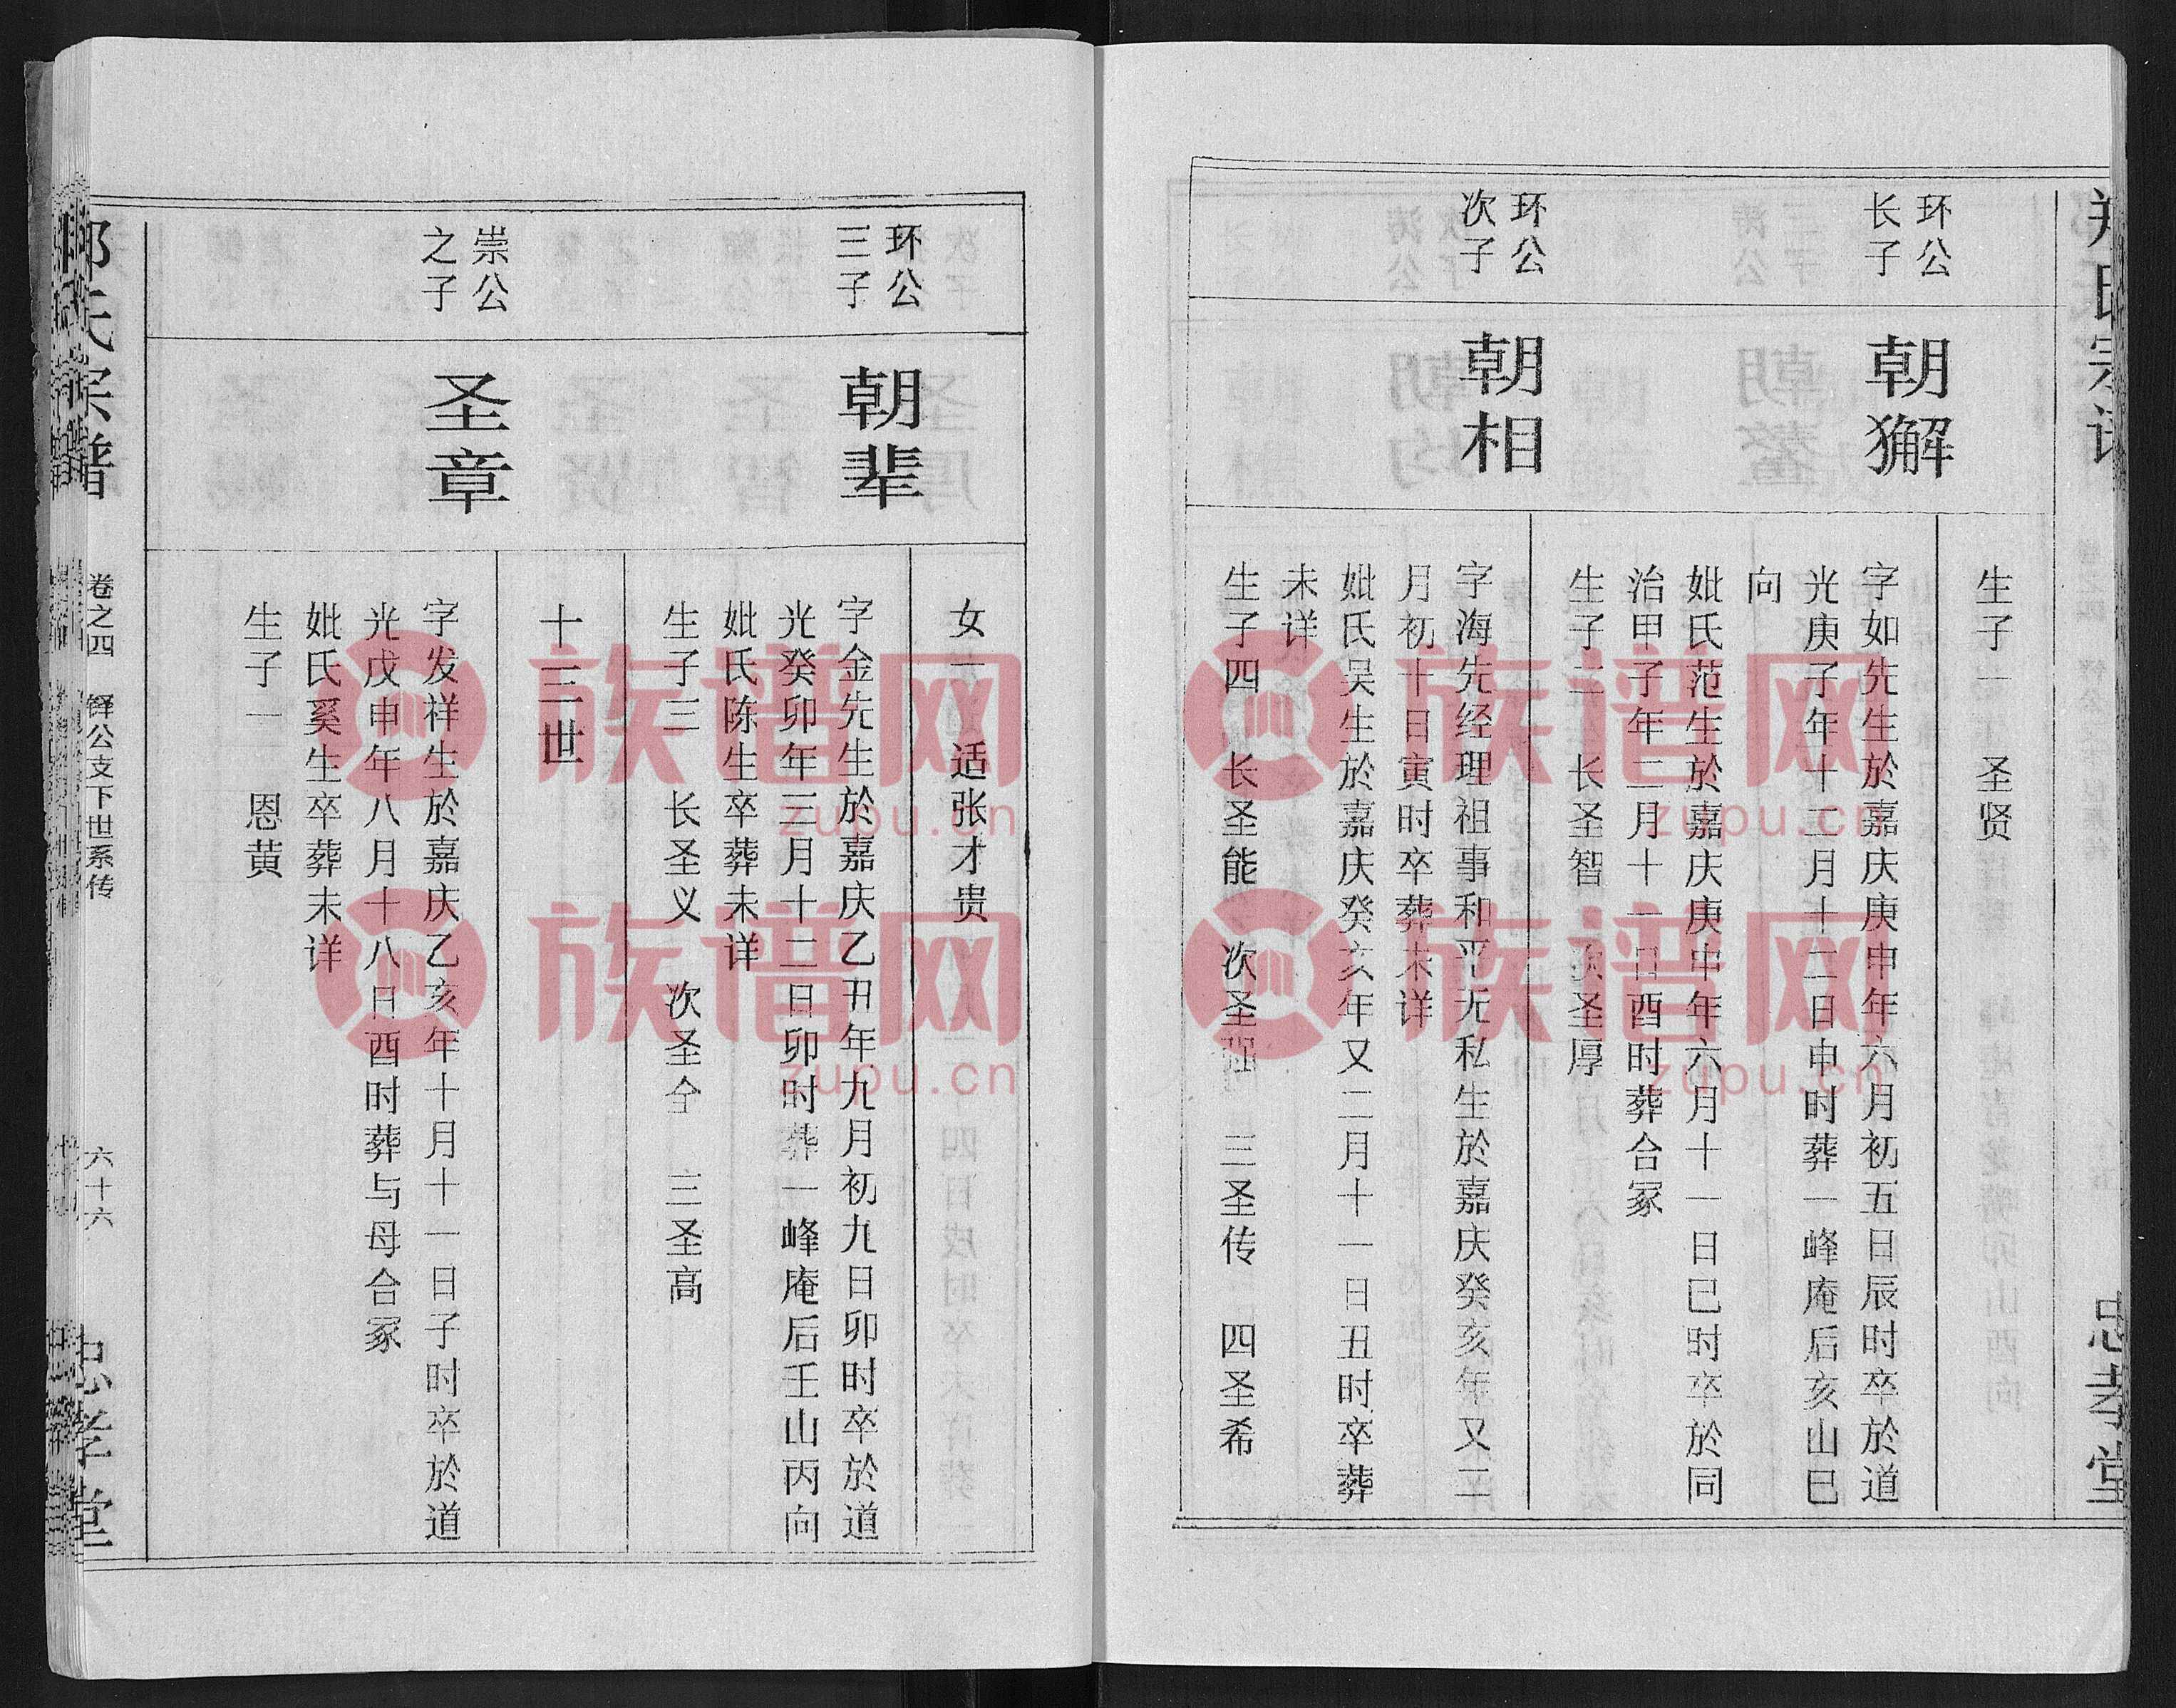 生子一 圣贤
环公
长子
朝獬
字如先生於嘉庆庚申年六月初五日辰时卒於道
光庚子年十二月十二日申时葬一峰庵后亥山巳
向
妣氏范生於嘉庆庚申年六月十一日巳时卒於同
治甲子年二月十一日酉时葬合冢
生子二 长圣智 次圣厚
环公
次子
朝相
字海先经理祖事和平无私生於嘉庆癸亥年又二
月初十日寅时卒葬未详
妣氏吴生於嘉庆癸亥年又二月十一日丑时卒葬
未详
生子四 长圣能 次圣 三圣传 四圣希
忠孝堂
女一 适张才贵
环公
三子
朝辈
字金先生於嘉庆乙丑年九月初九日卯时卒於道
光癸卯年三月十二日卯时葬一峰庵后壬山丙向
妣氏陈生卒葬未详
生子三 长圣义 次圣全 三圣高
十三世
崇公
之子
圣章
字发祥生於嘉庆乙亥年十月十一日子时卒於道
光戊申年八月十八日酉时葬与母合冢
妣氏奚生卒葬未详
生子一 恩黄
氏宗谱
卷之四 铎公支下世系传
六十六
忠孝堂
族谱网
zupu.cn
族谱网
zupu.cn
族谱网
zupu.cn
族谱网
zupu.cn